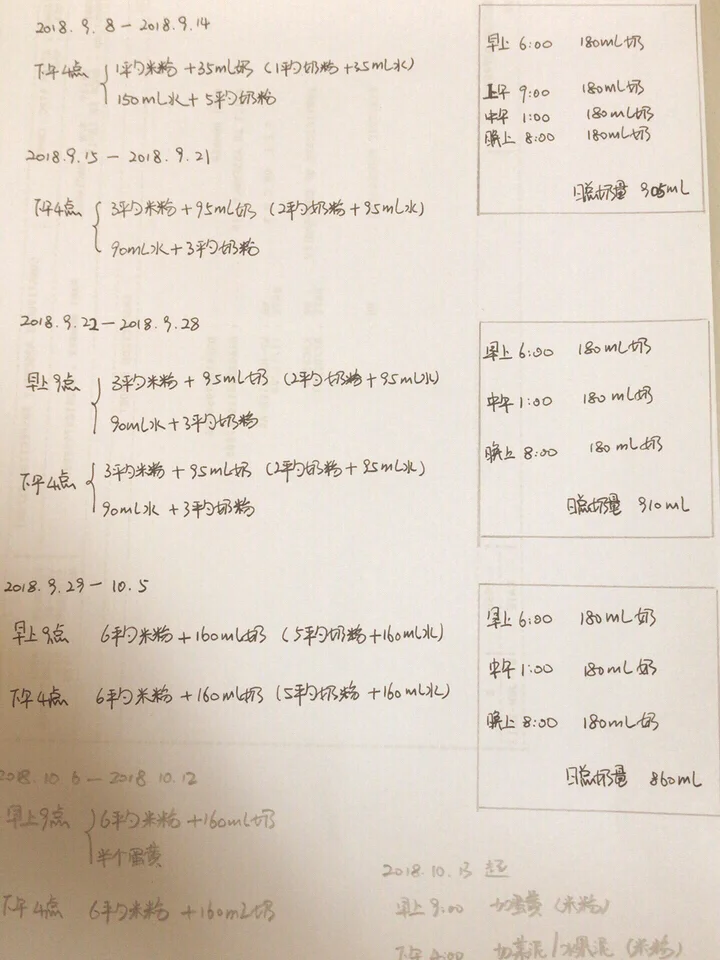 2018.9.8 — 2018.9.14
下午4点 1平勺米粉 + 35mL奶 (1平勺奶粉 + 35mL水)
150mL水 + 5平勺奶粉
早上 6:00 180mL奶
上午 9:00 180mL奶
中午 1:00 180mL奶
晚上 8:00 180mL奶
日总奶量 905mL
2018.9.15 — 2018.9.21
下午4点 3平勺米粉 + 95mL奶 (2平勺奶粉 + 95mL水)
90mL水 + 3平勺奶粉
2018.9.22 — 2018.9.28
早上9点 3平勺米粉 + 95mL奶 (2平勺奶粉 + 95mL水)
90mL水 + 3平勺奶粉
下午4点 3平勺米粉 + 95mL奶 (2平勺奶粉 + 95mL水)
90mL水 + 3平勺奶粉
早上 6:00 180mL奶
中午 1:00 180mL奶
晚上 8:00 180mL奶
日总奶量 910mL
2018.9.29 — 10.5
早上9点 6平勺米粉 + 160mL奶 (5平勺奶粉 + 160mL水)
下午4点 6平勺米粉 + 160mL奶 (5平勺奶粉 + 160mL水)
早上 6:00 180mL奶
中午 1:00 180mL奶
晚上 8:00 180mL奶
日总奶量 860mL
2018.10.6 — 2018.10.12
早上9点 6平勺米粉 + 160mL奶
半个蛋黄
下午4点 6平勺米粉 + 160mL奶
2018.10.13 起
早上 9:00 加蛋黄 (米粉)
下午 4:00 加菜泥/水果泥 (米粉)